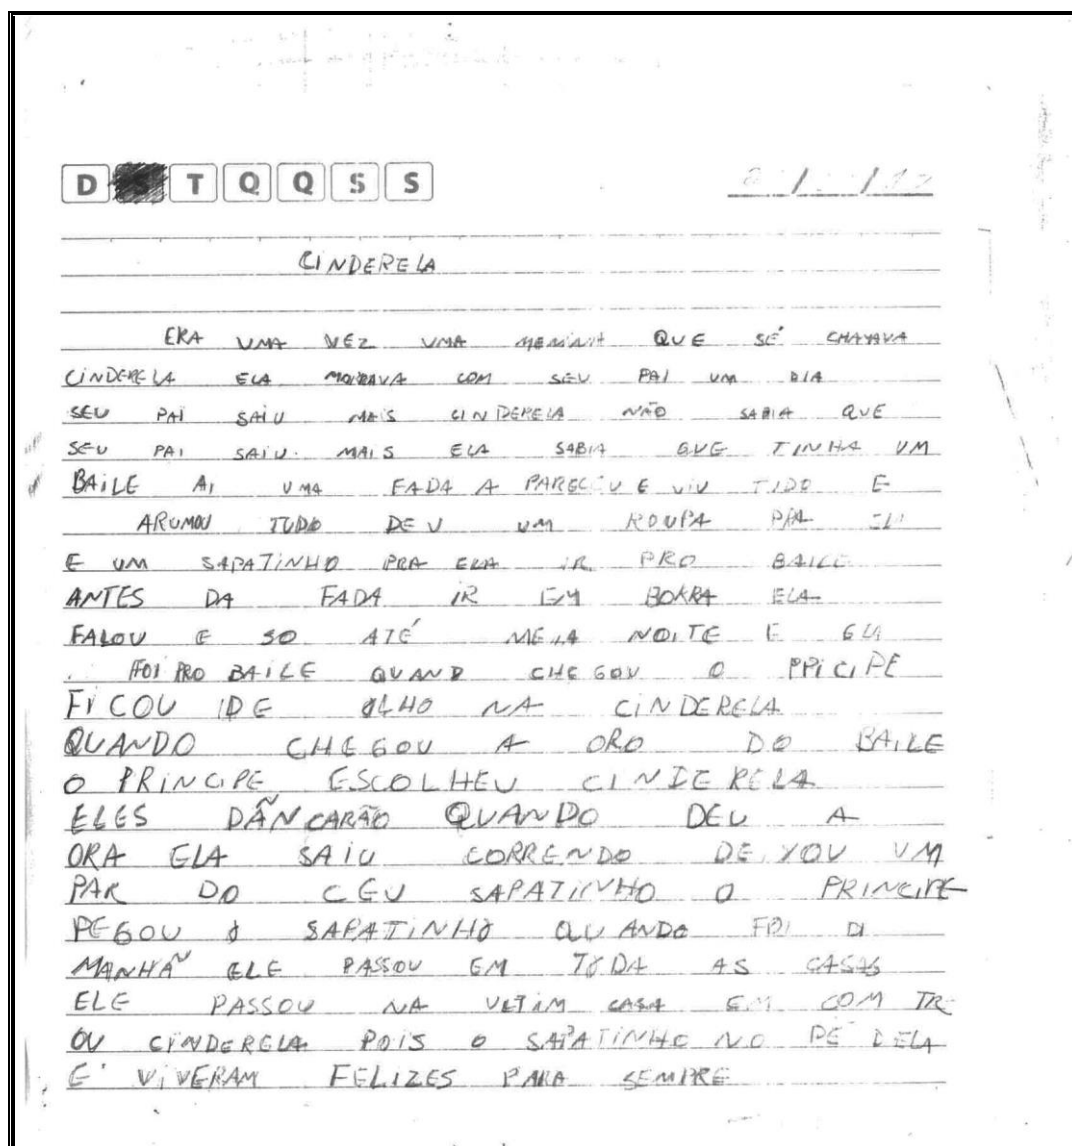 D S T Q Q S S
CINDERELA
ERA UMA VEZ UMA MENINA QUE SÉ CHAMAVA
CINDERELA ELA MORAVA COM SEU PAI UM DIA
SEU PAI SAIU MAIS CINDERELA NÃO SABIA QUE
SEU PAI SAIU. MAIS ELA SABIA QUE TINHA UM
BAILE AI UMA FADA A PARECEU E VIU TIDO E
ARUMOU TUDO DEU UM ROUPA PRA
E UM SAPATINHO PRA ELA IR PRO BAILE
ANTES DA FADA IR EM BORRA ELA
FALOU E SO ATÉ MEIA NOITE E ELA
FOI PRO BAILE QUAND CHEGOU O PPICIPE
FICOU DE OLHO NA CINDERELA
QUANDO CHEGOU A ORO DO BAILE
O PRINCIPE ESCOLHEU CINDERELA
ELES DÃNCARÃO QUANDO DEU A
ORA ELA SAIU CORRENDO DEXOU UM
PAR DO CEU SAPATINHO O PRINCIPE
PEGOU O SAPATINHO QUANDO FOI DI
MANHÃ ELE PASSOU EM TODA AS CASAS
ELE PASSOU NA ULTIM CASA EM COM TR
OU CINDERELA POIS O SAPATINHO NO PÉ DELA
E VIVERAM FELIZES PARA SEMPRE